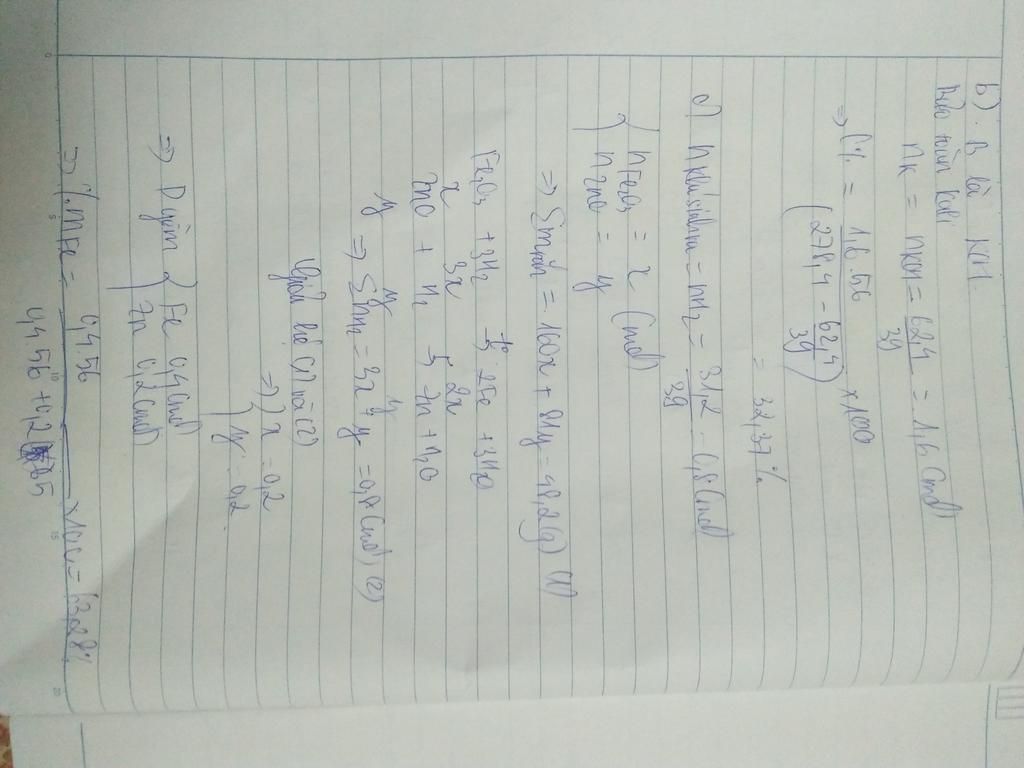 b). B là KOH
Bảo toàn Kali
nK = nKOH = 62,4 / 39 = 1,6 (mol)
=> C% = 1,6.56 / (278,4 - 62,4 / 39) x100
= 32,37%
c) nkhí sinh ra = nH2 = 31,2 / 39 = 0,8 (mol)
{ nFe2O3 = x (mol)
nZnO = y
=> Σm hh = 160x + 81y = 48,2(g) (1)
Fe2O3 + 3H2 to→ 2Fe + 3H2O
x 3x 2x
ZnO + H2 → Zn + H2O
y y y
=> ΣnH2 = 3x + y = 0,8 (mol) (2)
Giải hệ (1) và (2)
=> { x = 0,2
y = 0,2
=> D gồm { Fe 0,4 (mol)
Zn 0,2 (mol)
=> %mFe = 0,4.56 / 0,4.56 + 0,2.65 x100 = 63,28%